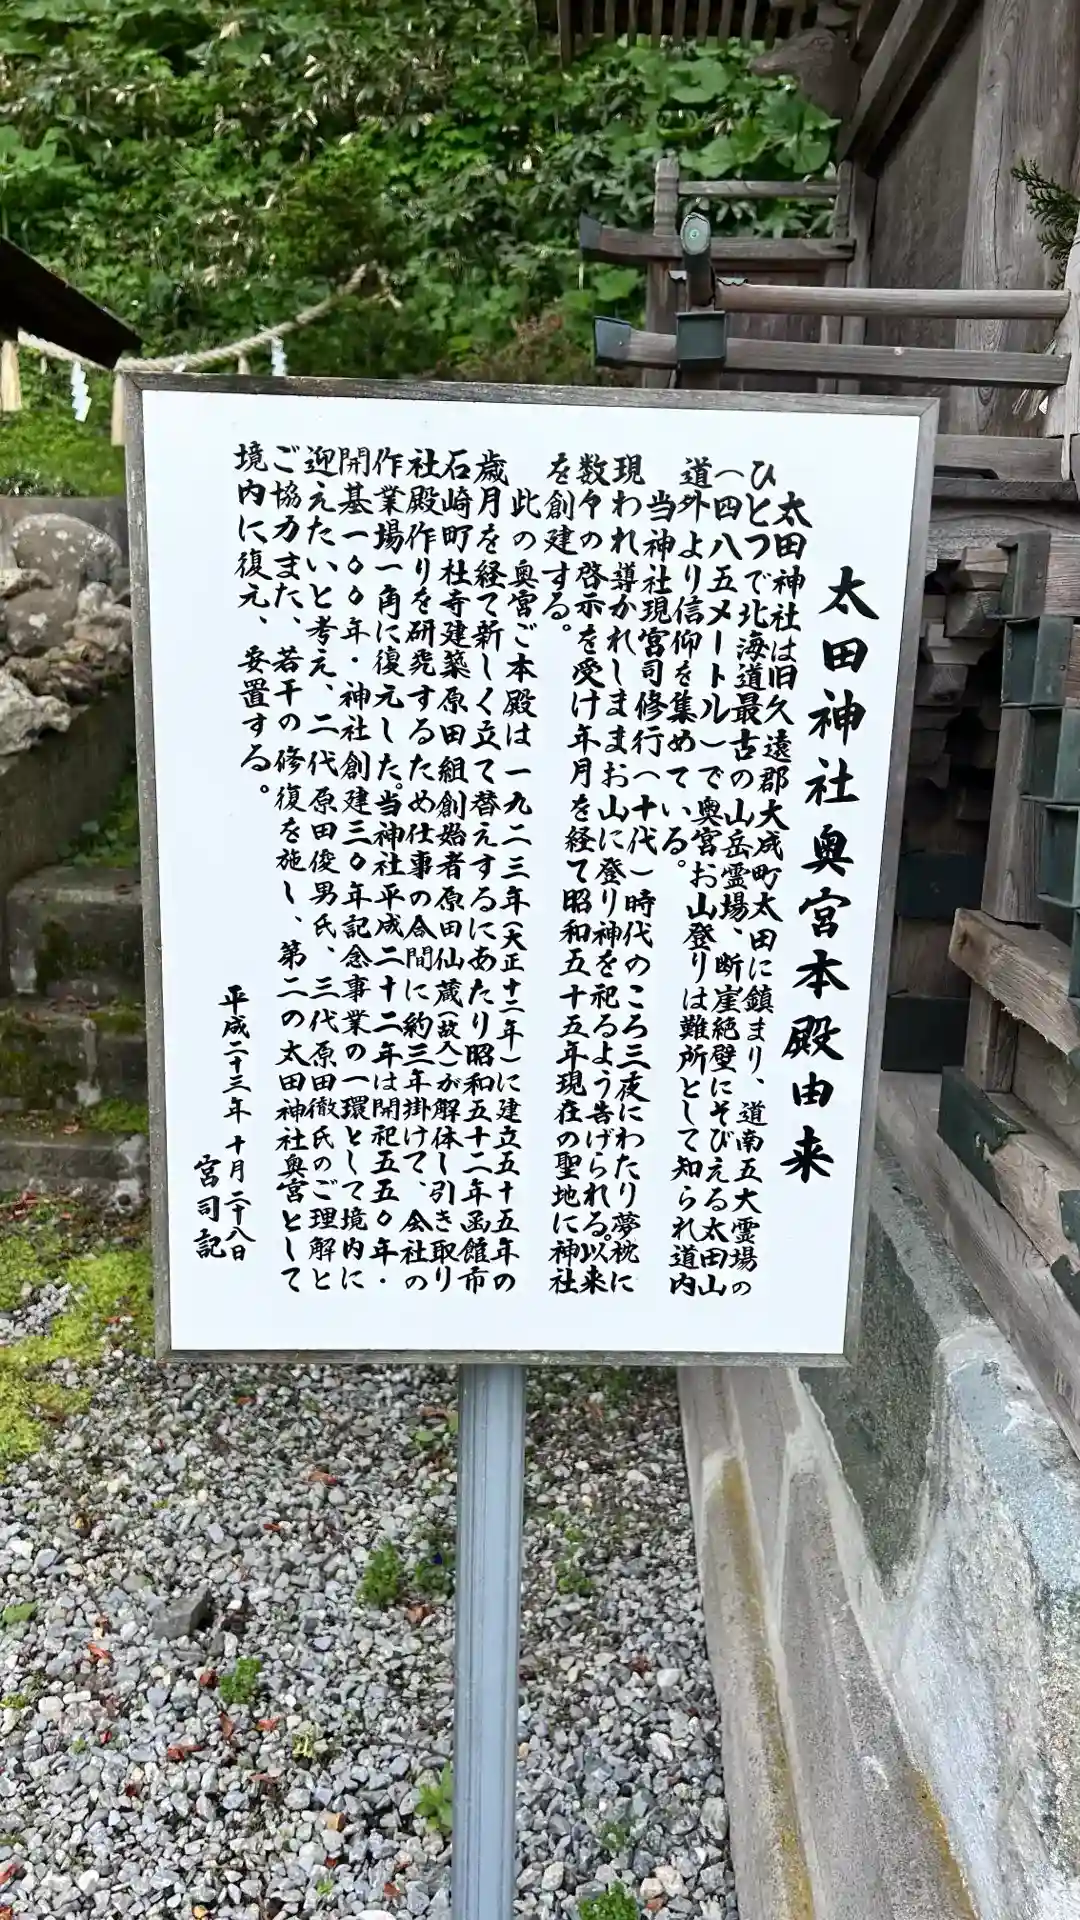 太田神社奥宮本殿由来
太田神社は旧久遠郡大成町太田に鎮まり、道南五大霊場の
ひとつで北海道最古の山岳霊場、断崖絶壁にそびえる太田山
(四八五メートル)で奥宮お山登りは難所として知られ道内
道外より信仰を集めている。
当神社現宮司修行(十代)時代のころ三夜にわたり夢枕に
現われ導かれしままお山に登り神を祀るよう告げられる。以来
数々の啓示を受け年月を経て昭和五十五年現在の聖地に神社
を創建する。
此の奥宮ご本殿は一九二三年(大正十二年)に建立五十五年の
歳月を経て新しく立て替えするにあたり昭和五十二年函館市
石崎町社寺建築原田組創始者原田仙蔵(故人)が解体し引き取り
社殿作りを研究するため仕事の合間に約三年掛けて、会社の
作業場一角に復元した。当神社平成二十二年は開祀五五〇年・
開基一〇〇年・神社創建三〇年記念事業の一環として境内に
迎えたいと考え、二代原田俊男氏、三代原田徹氏のご理解と
ご協力また、若干の修復を施し、第二の太田神社奥宮として
境内に復元、安置する。
平成二十三年十月二十八日
宮司記